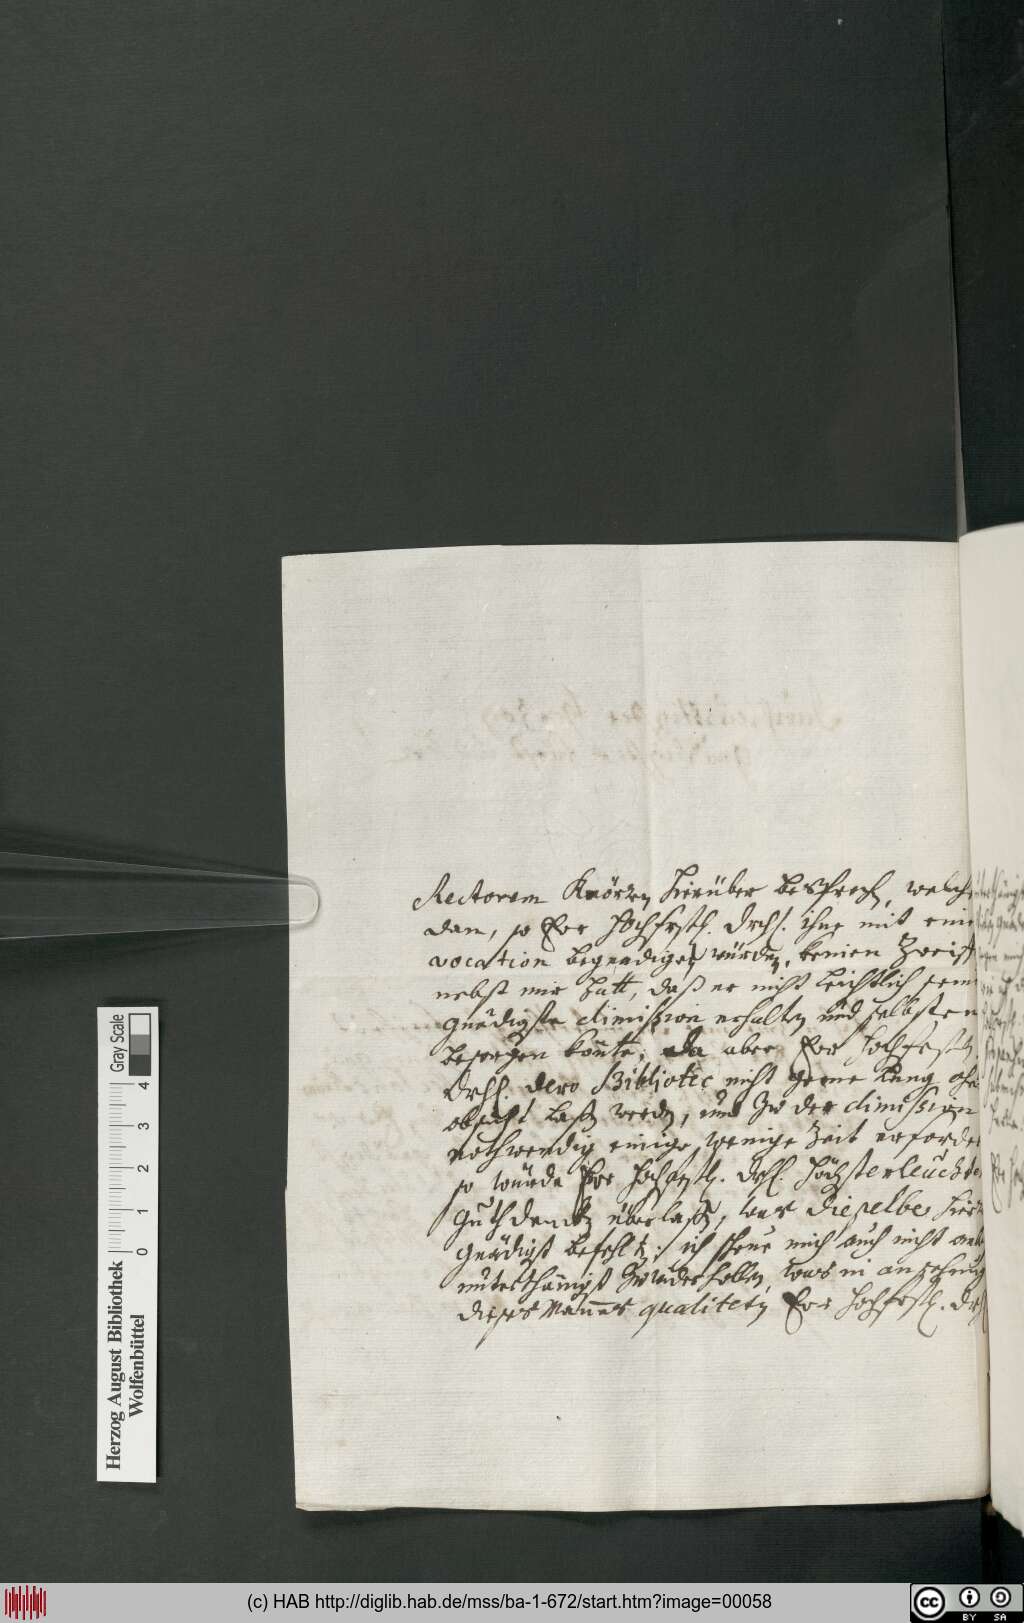 Rectorem Knörzen hierüber besprech, welche
dan, so Ewe Hochfrstl. Drchl. ihne mit eine
vocation begnadiget würden, keinen Zweif
nebst mir hatt, daß er nicht leichtlich sein
gnädigste dimission erhalten und selbsten
besorgen könte; da aber Ewe Hochfrstl.
Drchl. dero Bibliotec nicht gerne lang ohne
obsicht laßen werden, und zu der dimission
nothwendig einige wenige Zeit erforder
so würde Ewe Hochfrstl. Drchl. Höchsterleuchte
überlaßen, was Dieselbe hier
gnädigst befehlen; ich scheue mich auch nicht
unterthänigst zu widerhollen, was in ansehung
dieses Mannes qualiteten Ewe Hochfrstl. Drchl
Herzog August Bibliothek
Wolfenbüttel
Gray Scale
0 1 2 3 4
(c) HAB http://diglib.hab.de/mss/ba-1-672/start.htm?image=00058
cc BY SA